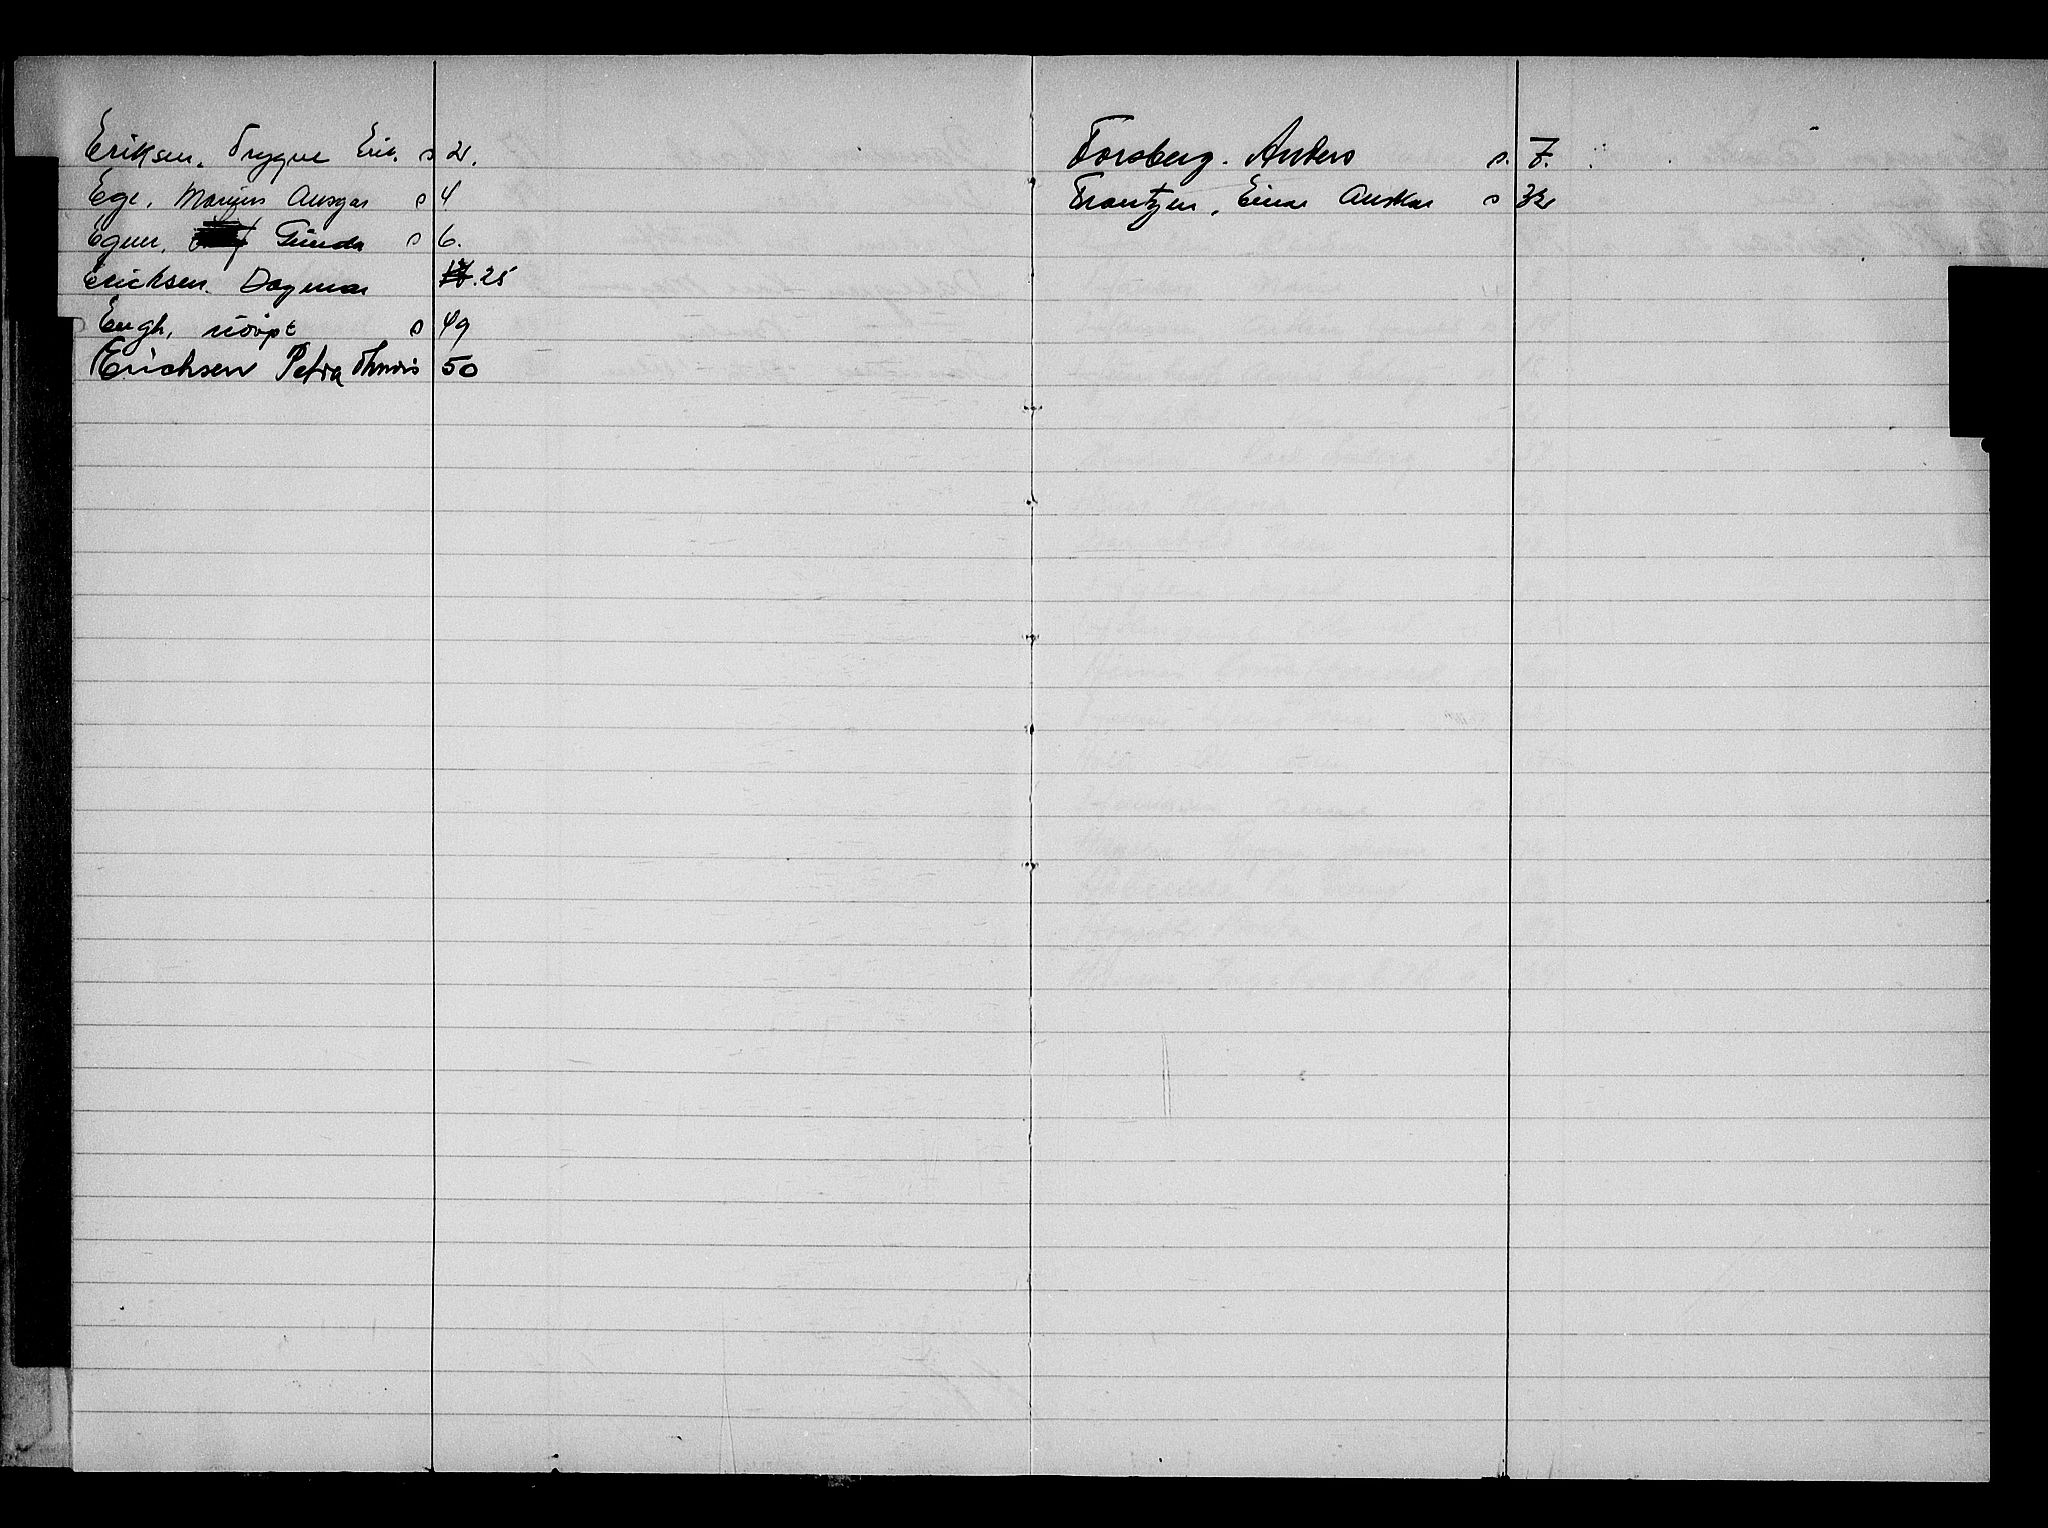 Eriksen. Trygve Eric. s 2.
Ege, Marius Ansgar s 4
Egner, Gunda s 6.
Ericksen. Dagmar 25
Engh, udøpt s 49
Erichsen Petra 50
Forsberg. Anders s. 7.
Frantzen, Einar Anskar s 32